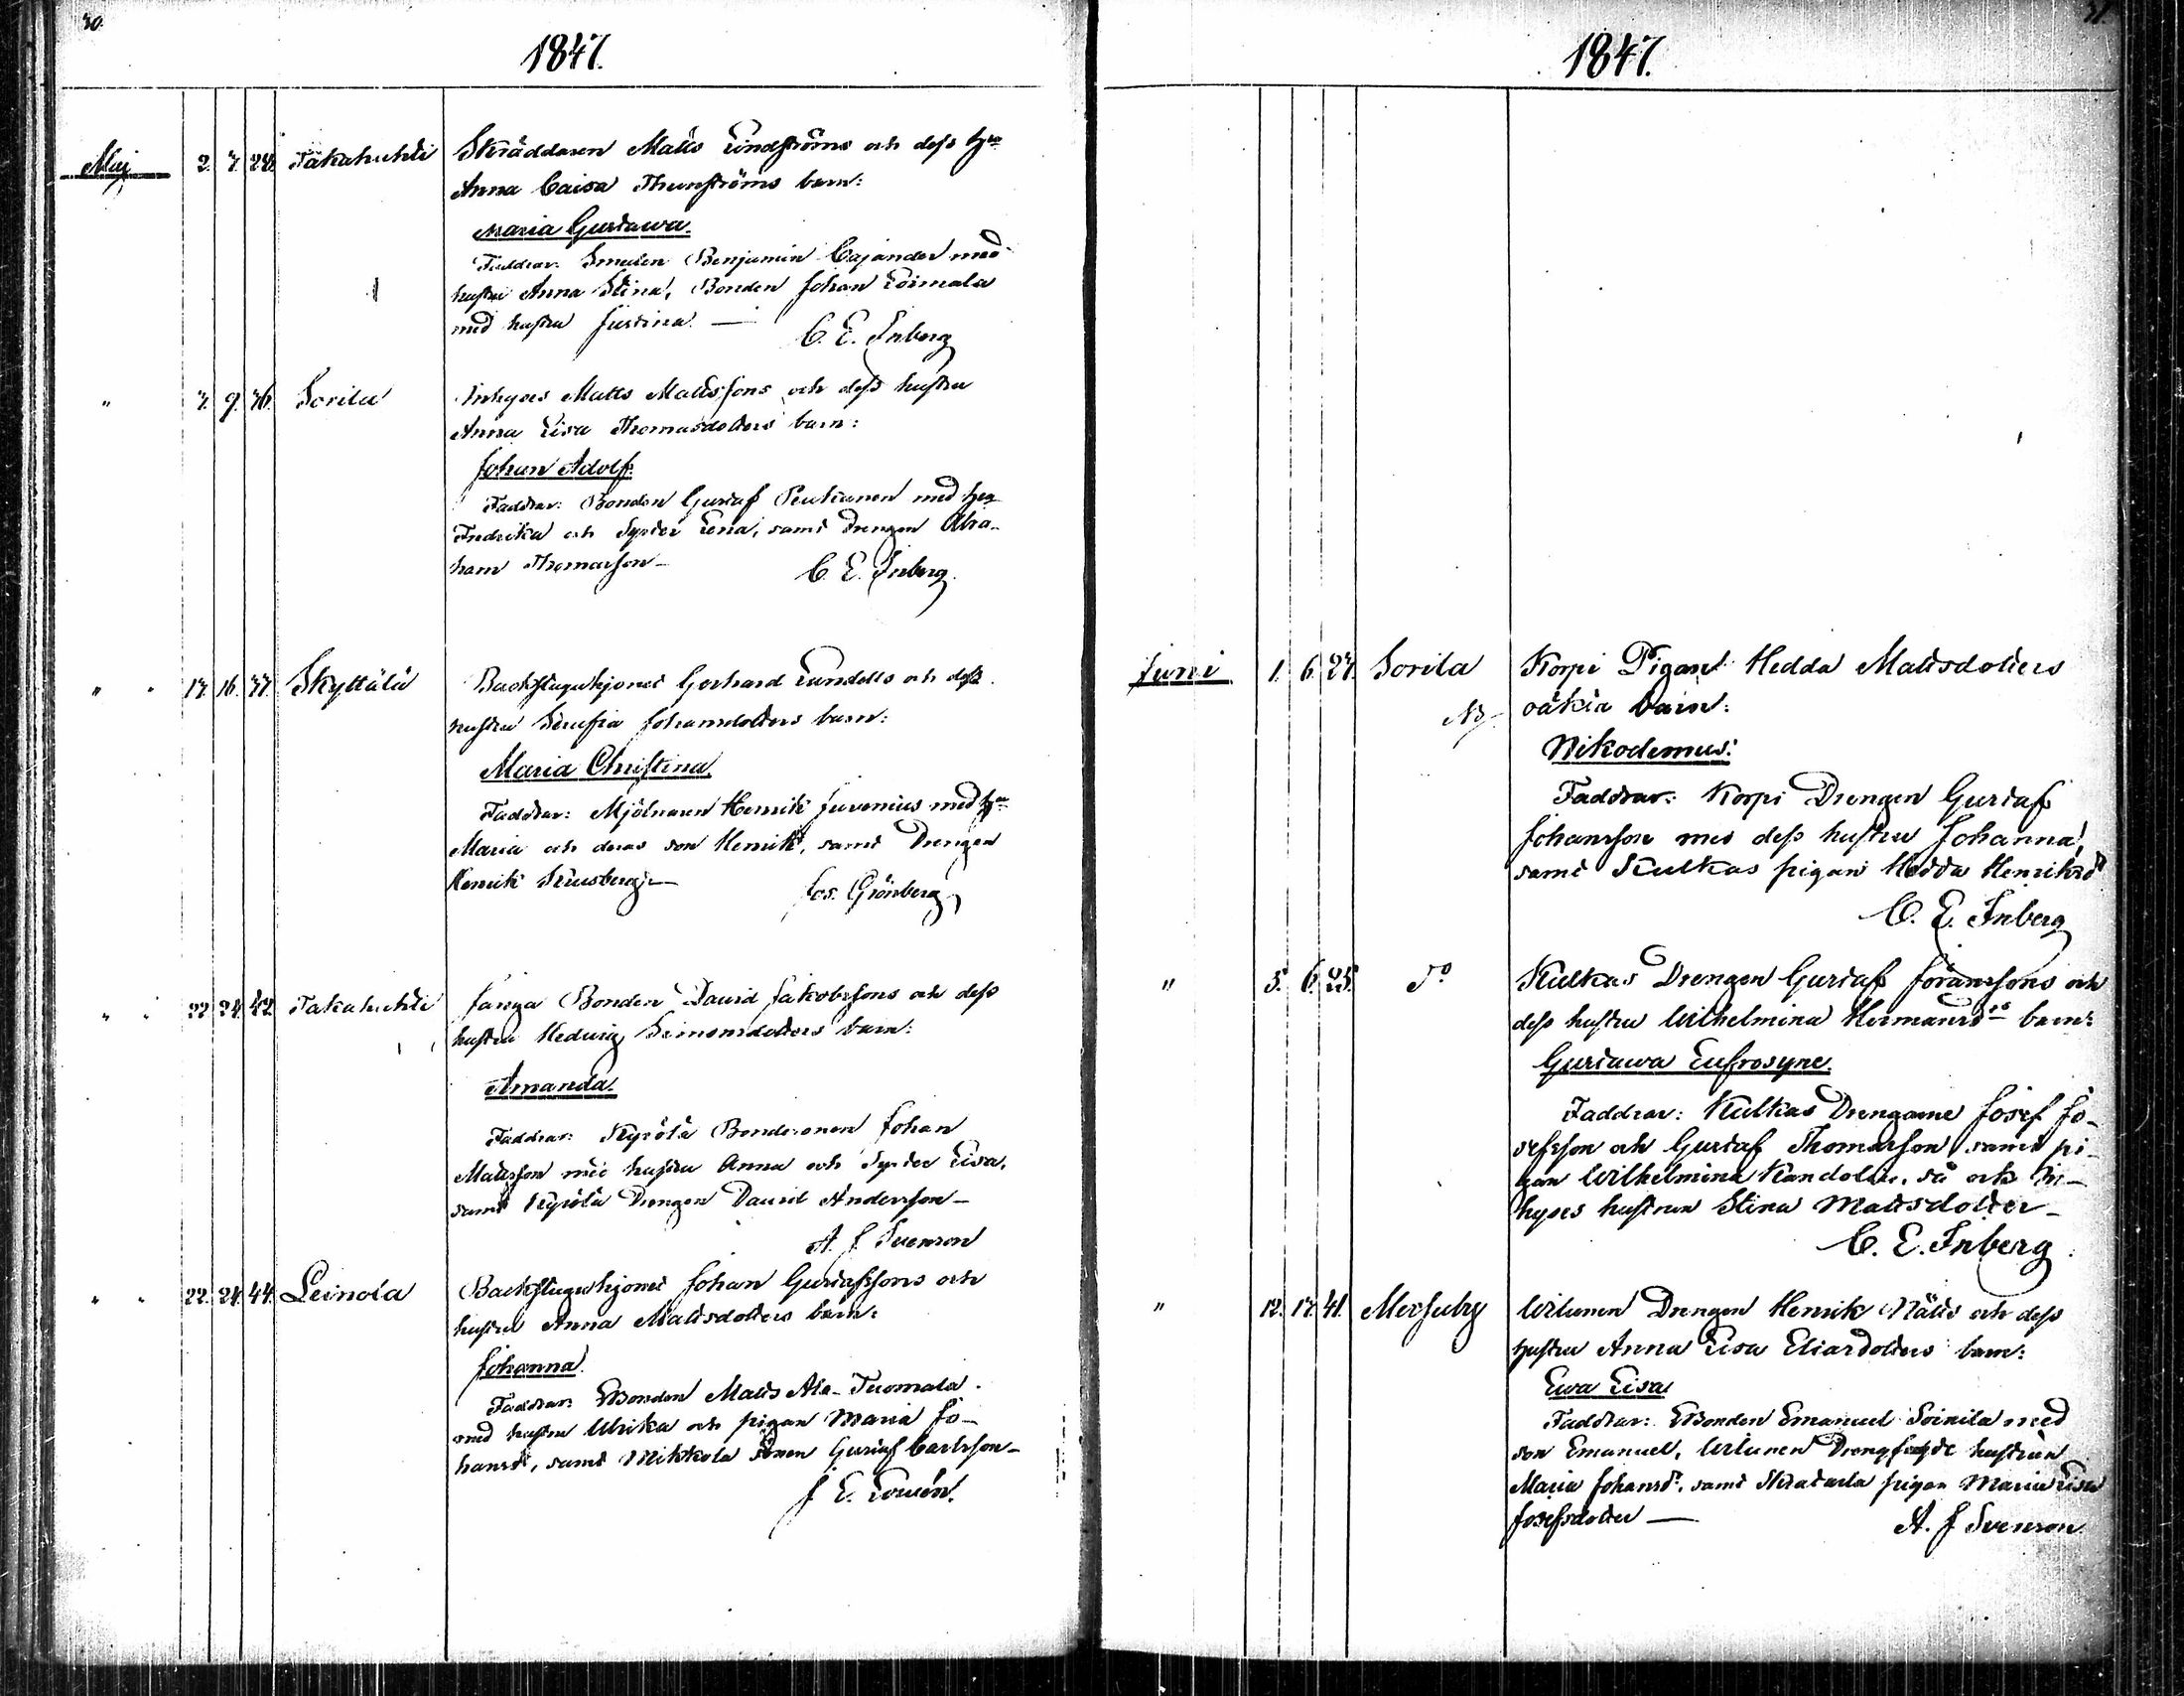 30.
1847.
Maj 2. 7. 28. Takahuhti Skräddaren Matts Lindströms och dess h:u
Anna Caisa Thunströms barn:
Maria Gustawa.
Faddrar: Smeden Benjamin Cajander med
hustru Anna Stina, Bonden Johan Loimala
med hustru Justina. —
C. E. Inberg
" 7. 9. 36. Sorila Inhyses Matts Mattssons och dess hustru
Anna Lisa Thomasdotters barn:
Johan Adolf.
Faddrar: Bonden Gustaf Penkanen med h:u
Fredrika och Syster Lena, samt Drengen Abra-
ham Thomasson —
C. E. Inberg.
" " 13. 16. 37. Skyttälä Backstuguhjonet Gerhard Lundells och dess
hustru Serafia Johansdotters barn:
Maria Christina.
Faddrar: Mjölnaren Henrik Juvenius med h:u
Maria och deras son Henrik, samt Drengen
Henrik —
Jos. Grönberg
" " 22. 24. 42. Takahuhti Janga Bonden David Jakobssons och dess
hustru Hedwig Simonsdotters barn:
Amanda.
Faddrar: Kyrölä Bondesonen Johan
Mattsson med hustru Anna och Syster Lisa,
samt Kyrölä Drengen David Andersson —
A. J. Svenson
" " 22. 24. 44. Leinola Backstuguhjonet Johan Gustafssons och
hustru Anna Mattsdotters barn:
Johanna.
Faddrar: Bonden Matts Ala-Tuomala
med hustru Ulrika och pigan Maria Jo-
hansd:r, samt Mikkola sonen Gustaf Carlsson —
J. E. Lowén.
31.
1847.
Juni 1. 6. 27. Sorila Korpi Pigan Hedda Mattsdotters
NB oäkta barn:
Nikodemus.
Faddrar: Korpi Drengen Gustaf
Johansson med dess hustru Johanna,
samt Kulkas pigan Hedda Henriksd:r
C. E. Inberg
" 5. 6. 25. D:o Kulkas Drengen Gustaf Göranssons och
dess hustru Wilhelmina Hermansd:rs barn:
Gustawa Eufrosyne.
Faddrar: Kulkas Drengarne Josef Jo-
sefsson och Gustaf Thomasson samt pi-
gan Wilhelmina Kandolin, så ock In-
hyses hustrun Stina Mattsdotter —
C. E. Inberg
" 12. 17. 41. Messuby Uitunen Drengen Henrik Mätts och dess
hustru Anna Lisa Eliasdotters barn:
Ewa Lisa
Faddrar: Bonden Emanuel Soinila med
son Emanuel, Uitunen hustrun
Maria Johansd:r, samt pigan Maria Lisa
Josefsdotter —
A. J. Svenson